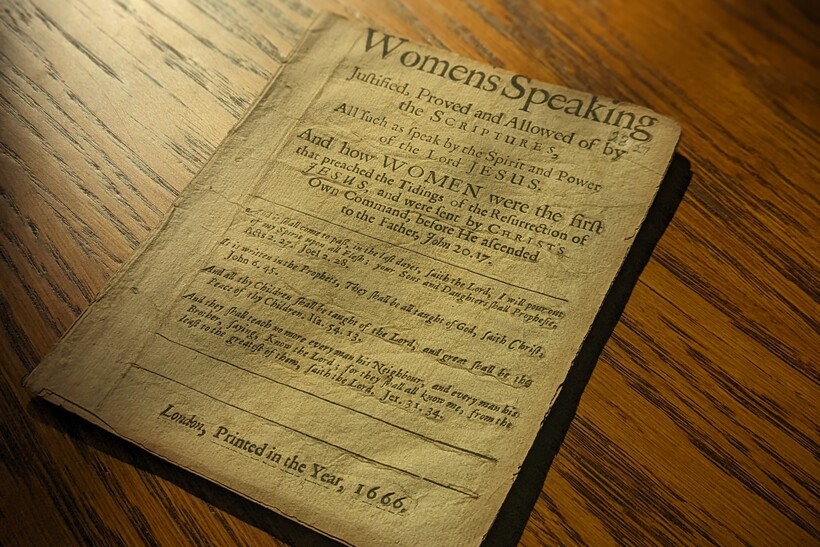 Womens Speaking
Juſtified, Proved and Allowed of by
the SCRIPTURES,
All ſuch as ſpeak by the Spirit and Power
of the Lord JESUS.
And how WOMEN were the firſt
that preached the Tidings of the Reſurrection of
JESUS, and were ſent by CHRISTS
Own Command, before He aſcended
to the Father, John 20. 17.
And it ſhall come to paſs, in the laſt dayes, ſaith the Lord, I will pour out
of my Spirit upon all Fleſh; your Sons and Daughters ſhall Propheſie.
Acts 2. 27. Joel 2. 28.
It is written in the Prophets, They ſhall be all taught of God, ſaith Chriſt,
John 6. 45.
And all thy Children ſhall be taught of the Lord, and great ſhall be the
Peace of thy Children. Iſa. 54. 13.
And they ſhall teach no more every man his Neighbour, and every man his
Brother, ſaying, Know the Lord; for they ſhall all know me, from the
leaſt to the greateſt of them, ſaith the Lord. Jer. 31. 34.
London, Printed in the Year, 1666.